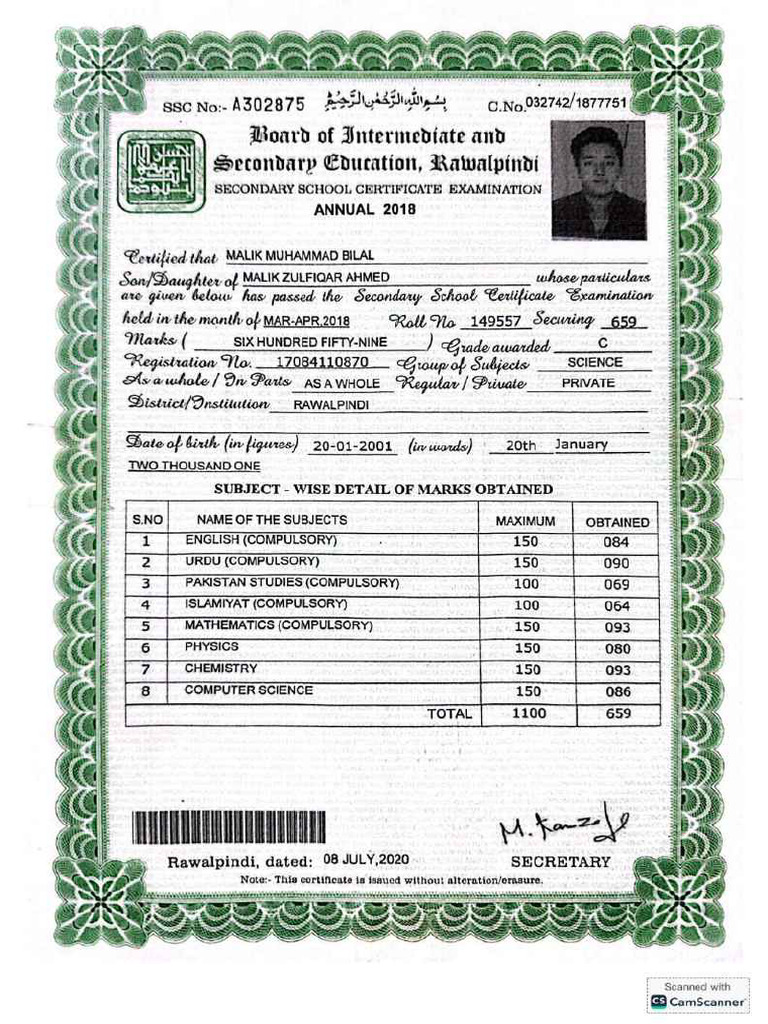 SSC No:- A302875 بِسْمِ اللهِ الرَّحْمٰنِ الرَّحِيْمِ C.No.032742/1877751
Board of Intermediate and
Secondary Education, Rawalpindi
SECONDARY SCHOOL CERTIFICATE EXAMINATION
ANNUAL 2018
Certified that MALIK MUHAMMAD BILAL
Son/Daughter of MALIK ZULFIQAR AHMED whose particulars
are given below has passed the Secondary School Certificate Examination
held in the month of MAR-APR,2018 Roll No 149557 Securing 659
Marks ( SIX HUNDRED FIFTY-NINE ) Grade awarded C
Registration No. 17084110870 Group of Subjects SCIENCE
As a whole / In Parts AS A WHOLE Regular / Private PRIVATE
District/Institution RAWALPINDI
Date of birth (in figures) 20-01-2001 (in words) 20th January
TWO THOUSAND ONE
SUBJECT - WISE DETAIL OF MARKS OBTAINED
S.NO NAME OF THE SUBJECTS MAXIMUM OBTAINED
1 ENGLISH (COMPULSORY) 150 084
2 URDU (COMPULSORY) 150 090
3 PAKISTAN STUDIES (COMPULSORY) 100 069
4 ISLAMIYAT (COMPULSORY) 100 064
5 MATHEMATICS (COMPULSORY) 150 093
6 PHYSICS 150 080
7 CHEMISTRY 150 093
8 COMPUTER SCIENCE 150 086
TOTAL 1100 659
Rawalpindi, dated: 08 JULY,2020 SECRETARY
Note:- This certificate is issued without alteration/erasure.
Scanned with
CS CamScanner